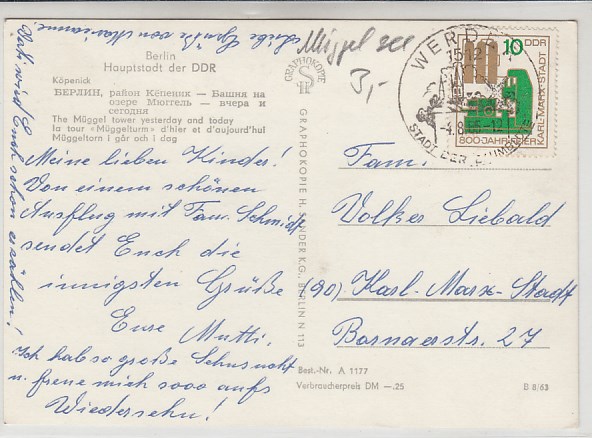 Berlin
Hauptstadt der DDR
Köpenick
БЕРЛИН, район Кёпеник — Башня на
озере Мюггель — вчера и
сегодня
The Müggel tower yesterday and today
la tour «Müggelturm» d'hier et d'aujourd'hui
Müggeltorn i går och i dag
Meine lieben Kinder!
Von einem schönen
Ausflug mit Fam. Schmidt
sendet Euch die
innigsten Grüße
Eure Mutti.
Ich hab so große Sehnsucht
u. freue mich sooo aufs
Wiedersehn!
Vati wird Euch schon erzählen!
Liebe Grüße von Marianne
Müggelsee
3,-
GRAPHOKOPIE
GRAPHOKOPIE H. SANDER K.G. BERLIN N 113
WERDAU
STADT DER
10 DDR
KARL-MARX-STADT
800-JAHR-FEIER
Fam.
Volker Liebald
(90) Karl-Marx-Stadt
Bornaerstr. 27
Best.-Nr. A 1177
Verbraucherpreis DM —.25
B 8/63